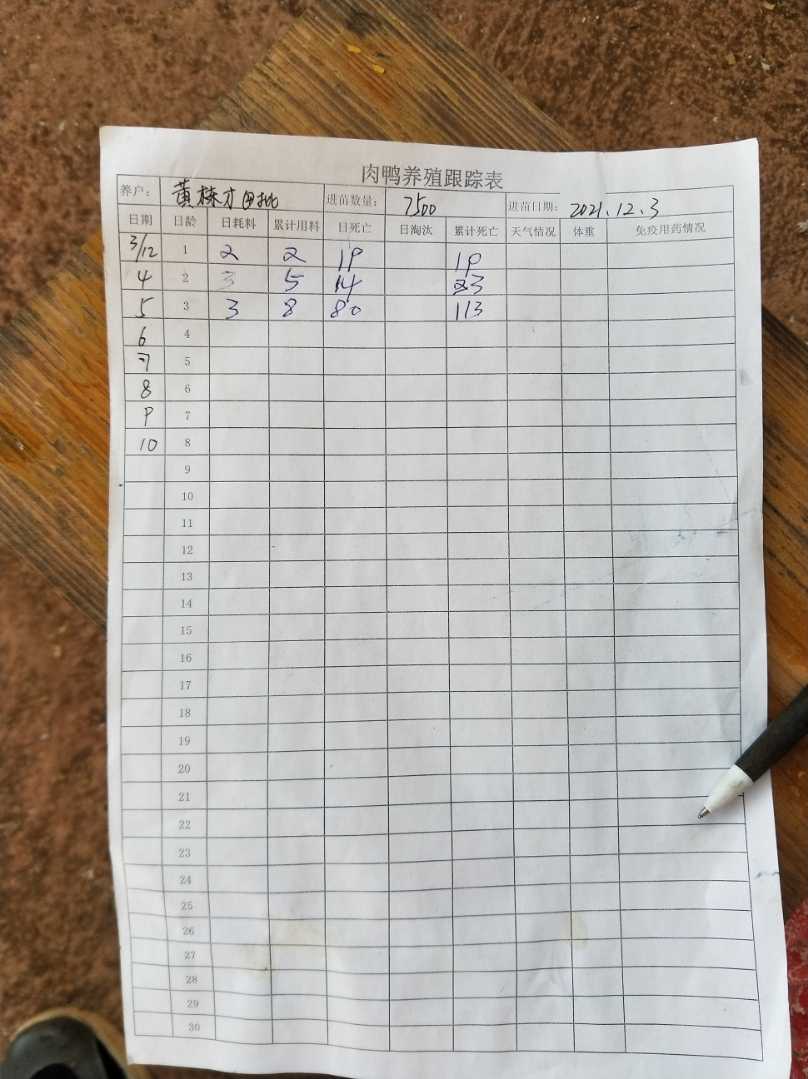 肉鸭养殖跟踪表
养户: 黄栋才四批 进苗数量: 7500 进苗日期: 2021.12.3
日期 日龄 日耗料 累计用料 日死亡 日淘汰 累计死亡 天气情况 体重 免疫用药情况
3/12 1 2 2 19 19
4 2 3 5 14 23
5 3 3 8 80 113
6 4
7 5
8 6
9 7
10 8
9
10
11
12
13
14
15
16
17
18
19
20
21
22
23
24
25
26
27
28
29
30